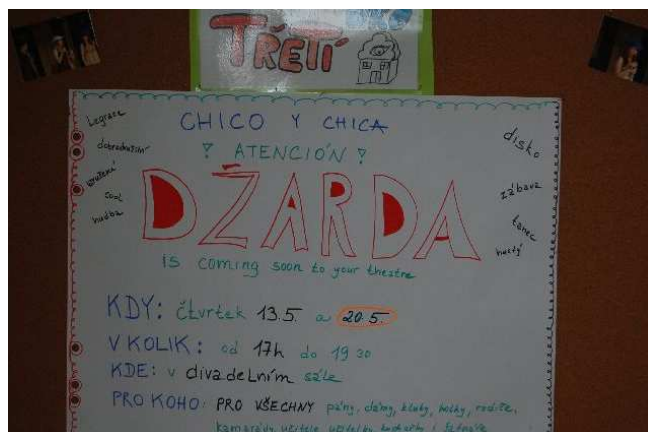 TŘETÍ
CHICO Y CHICA
? ATENCIÓN ?
DŽARDA
is coming soon to your theatre
legrace
dobrodružství
vzrušení
cool
hudba
disko
zábava
tanec
hustý
KDY: čtvrtek 13.5. a 20.5.
V KOLIK: od 17h do 19 30
KDE: v divadelním sále
PRO KOHO: PRO VŠECHNY pány, dámy, kluky, holky, rodiče,
kamarády, učitele, učitelky, kuchařky i